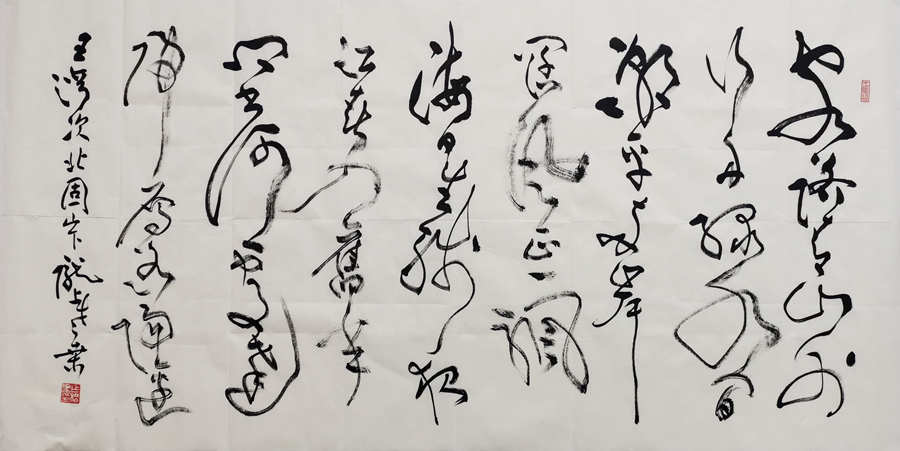 客路青山外
行舟绿水前
潮平两岸
阔风正一帆
海日生残夜
江春入旧年
乡书何处达
归雁洛阳边
王湾次北固山下